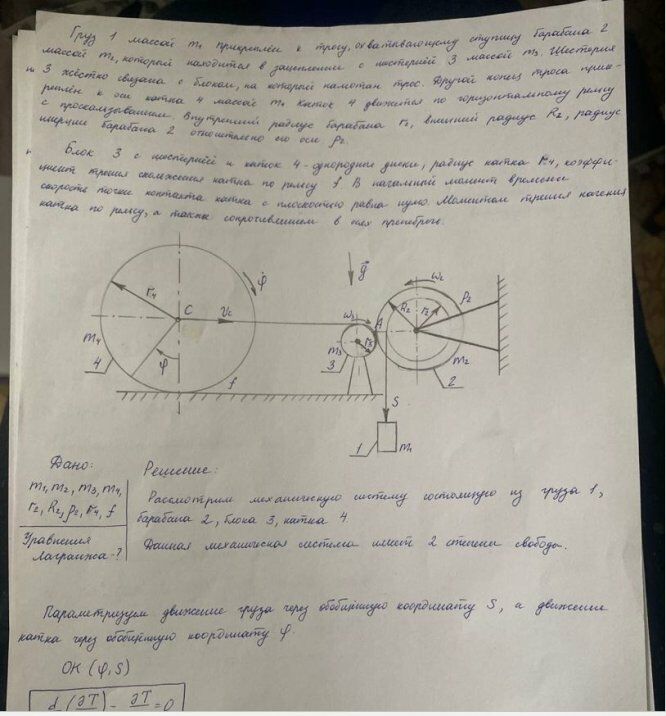 Груз 1 массой m₁ прикреплён к тросу, охватывающему ступицу барабана 2
массой m₂, который находится в зацеплении с шестерней 3 массой m₃. Шестерня
3 жёстко связана с блоком, на который намотан трос. Другой конец троса прик-
реплён к оси катка 4 массой m₄. Каток 4 движется по горизонтальному рельсу
с проскальзыванием. Внутренний радиус барабана r₂, внешний радиус R₂, радиус
инерции барабана 2 относительно его оси ρ₂.
Блок 3 с шестернёй и каток 4 - однородные диски, радиус катка r₄, коэффи-
циент трения скольжения катка по рельсу f. В начальный момент времени
скорость точки контакта катка с плоскостью равна нулю. Моментом трения качения
катка по рельсу, а также сопротивлением в осях пренебречь.
φ̇
g⃗
ω₂
r₄
C
v_c
ω₃
A
R₂
r₂
ρ₂
m₄
4
φ
f
m₃
3
r₃
m₂
2
S
1
m₁
Дано:
m₁, m₂, m₃, m₄,
r₂, R₂, ρ₂, r₄, f
Уравнения
Лагранжа - ?
Решение:
Рассмотрим механическую систему состоящую из груза 1,
барабана 2, блока 3, катка 4.
Данная механическая система имеет 2 степени свободы.
Параметризуем движение груза через обобщённую координату S, а движение
катка через обобщённую координату φ.
ОК (φ, S)
d (∂T) - ∂T = 0